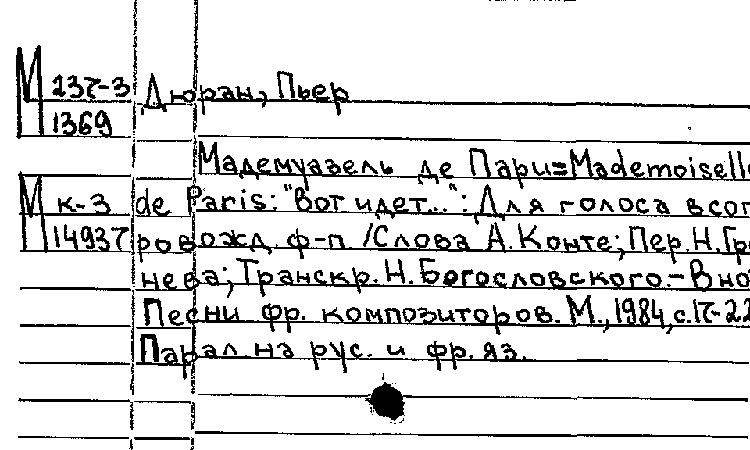 М 237-3 Дюран, Пьер
1369
Мадемуазель де Пари=Mademoiselle
М к-3 de Paris: "Вот идет...": Для голоса в соп
14937 ровожд. ф-п /Слова А. Конте; Пер. Н. Гре
нева; Транскр. Н. Богословского.- В но
Песни фр. композиторов. М., 1984, с.17-22
Парал. на рус. и фр. яз.